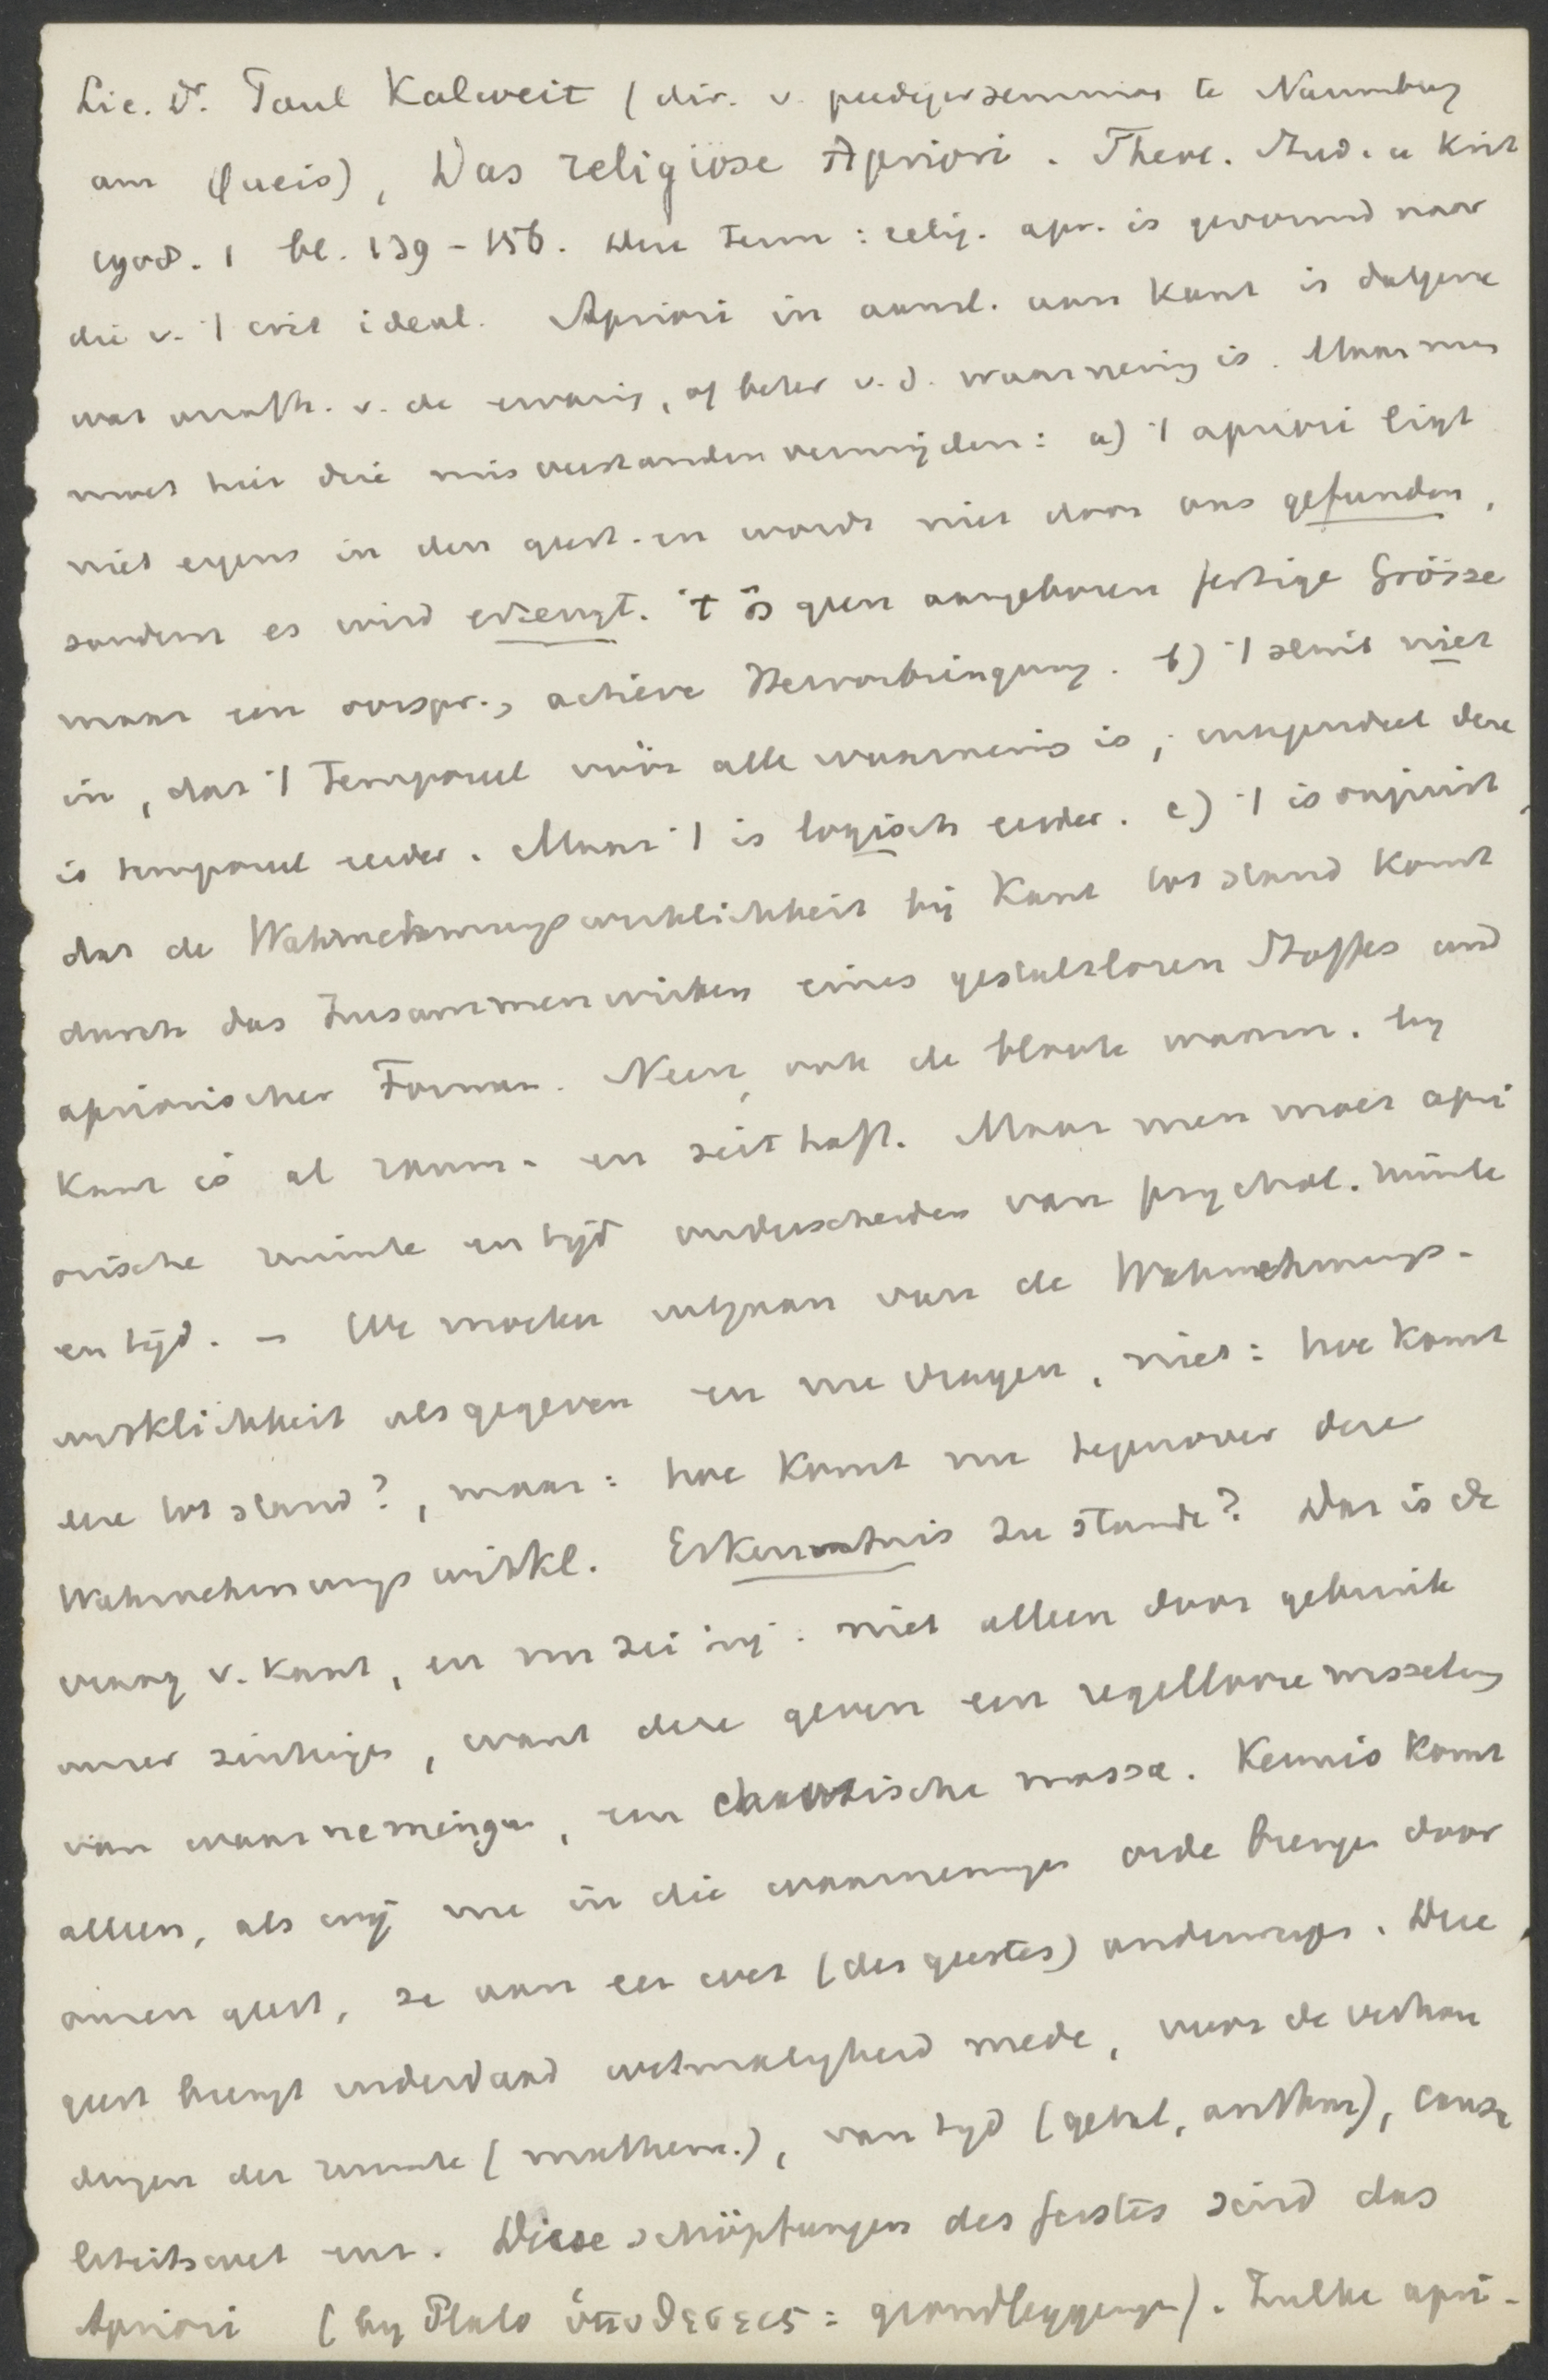 Lic. Dr. Paul Kalweit (dir. v. predigerseminar te Naumburg
am Queis), Das religiöse Apriori. Theol. Stud. u Krit
1908. 1 bl. 139-156. Deze term: relig. apr. is gevormd naar
die v. 't crit ideal. Apriori in aansl. aan Kant is datgene
wat onafh. v. de ervaring, of beter v. d. waarneming is. Maar men
moet hier drie misverstanden vermijden: a) 't apriori ligt
niet ergens in den geest en wordt niet door ons gefunden,
sondern es wird erzeugt. 't is geen aangeboren fertige Grösse
maar een oorspr., active Hervorbringung. b) 't sluit niet
in, dat 't temporeel vóór alle waarneming is; integendeel deze
is temporeel eerder. Maar 't is logisch eerder. c) 't is onjuist,
dat de Wahrnehmungswirklichkeit bij Kant tot stand komt
durch das Zusammenwirken eines gestaltlosen Stoffes und
apriorischer Formen. Neen, ook de bloote waarn. bij
Kant is al raum- en zeithaft. Maar men moet apri
orische ruimte en tijd onderscheiden van psychol. ruimte
en tijd. - We moeten uitgaan van de Wahrnehmungs-
wirklichkeit als gegeven en nu vragen, niet: hoe komt
deze tot stand?, maar: hoe komt nu tegenover deze
Wahrnehmungswirkl. Erkenntnis zu stande? Dat is de
vraag v. Kant, en nu zei hij: niet alleen door gebruik
onzer zintuigen, want deze geven een regellooze wisseling
van waarnemingen, een chaotische massa. Kennis komt
alleen, als wij nu in die waarnemingen orde brengen door
onzen geest, ze aan een wet (des geestes) onderwerpen. Deze
geest brengt inderdaad wetmatigheid mede, voor de verhou
dingen der ruimte (mathem.), van tijd (getal, arithm), causa
liteitswet enz. Diese Schöpfungen des Geistes sind das
Apriori (bij Plato ὑποθεσεις = grondleggingen). Zulke apri-